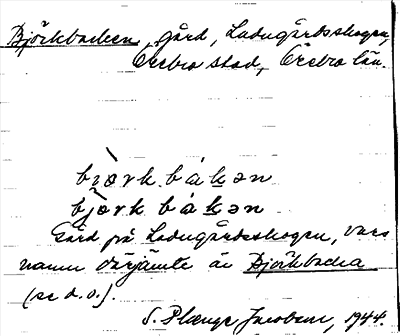 Björkbacken, gård, Ladugårdsskogen,
Örebro stad, Örebro län.
bjœ̀rk bákən
bjœrk bákən
Gård på Ladugårdsskogen, vars
namn därjämte är Björkbacka
(se d.o.).
S. Plænge Jacobson, 1944.